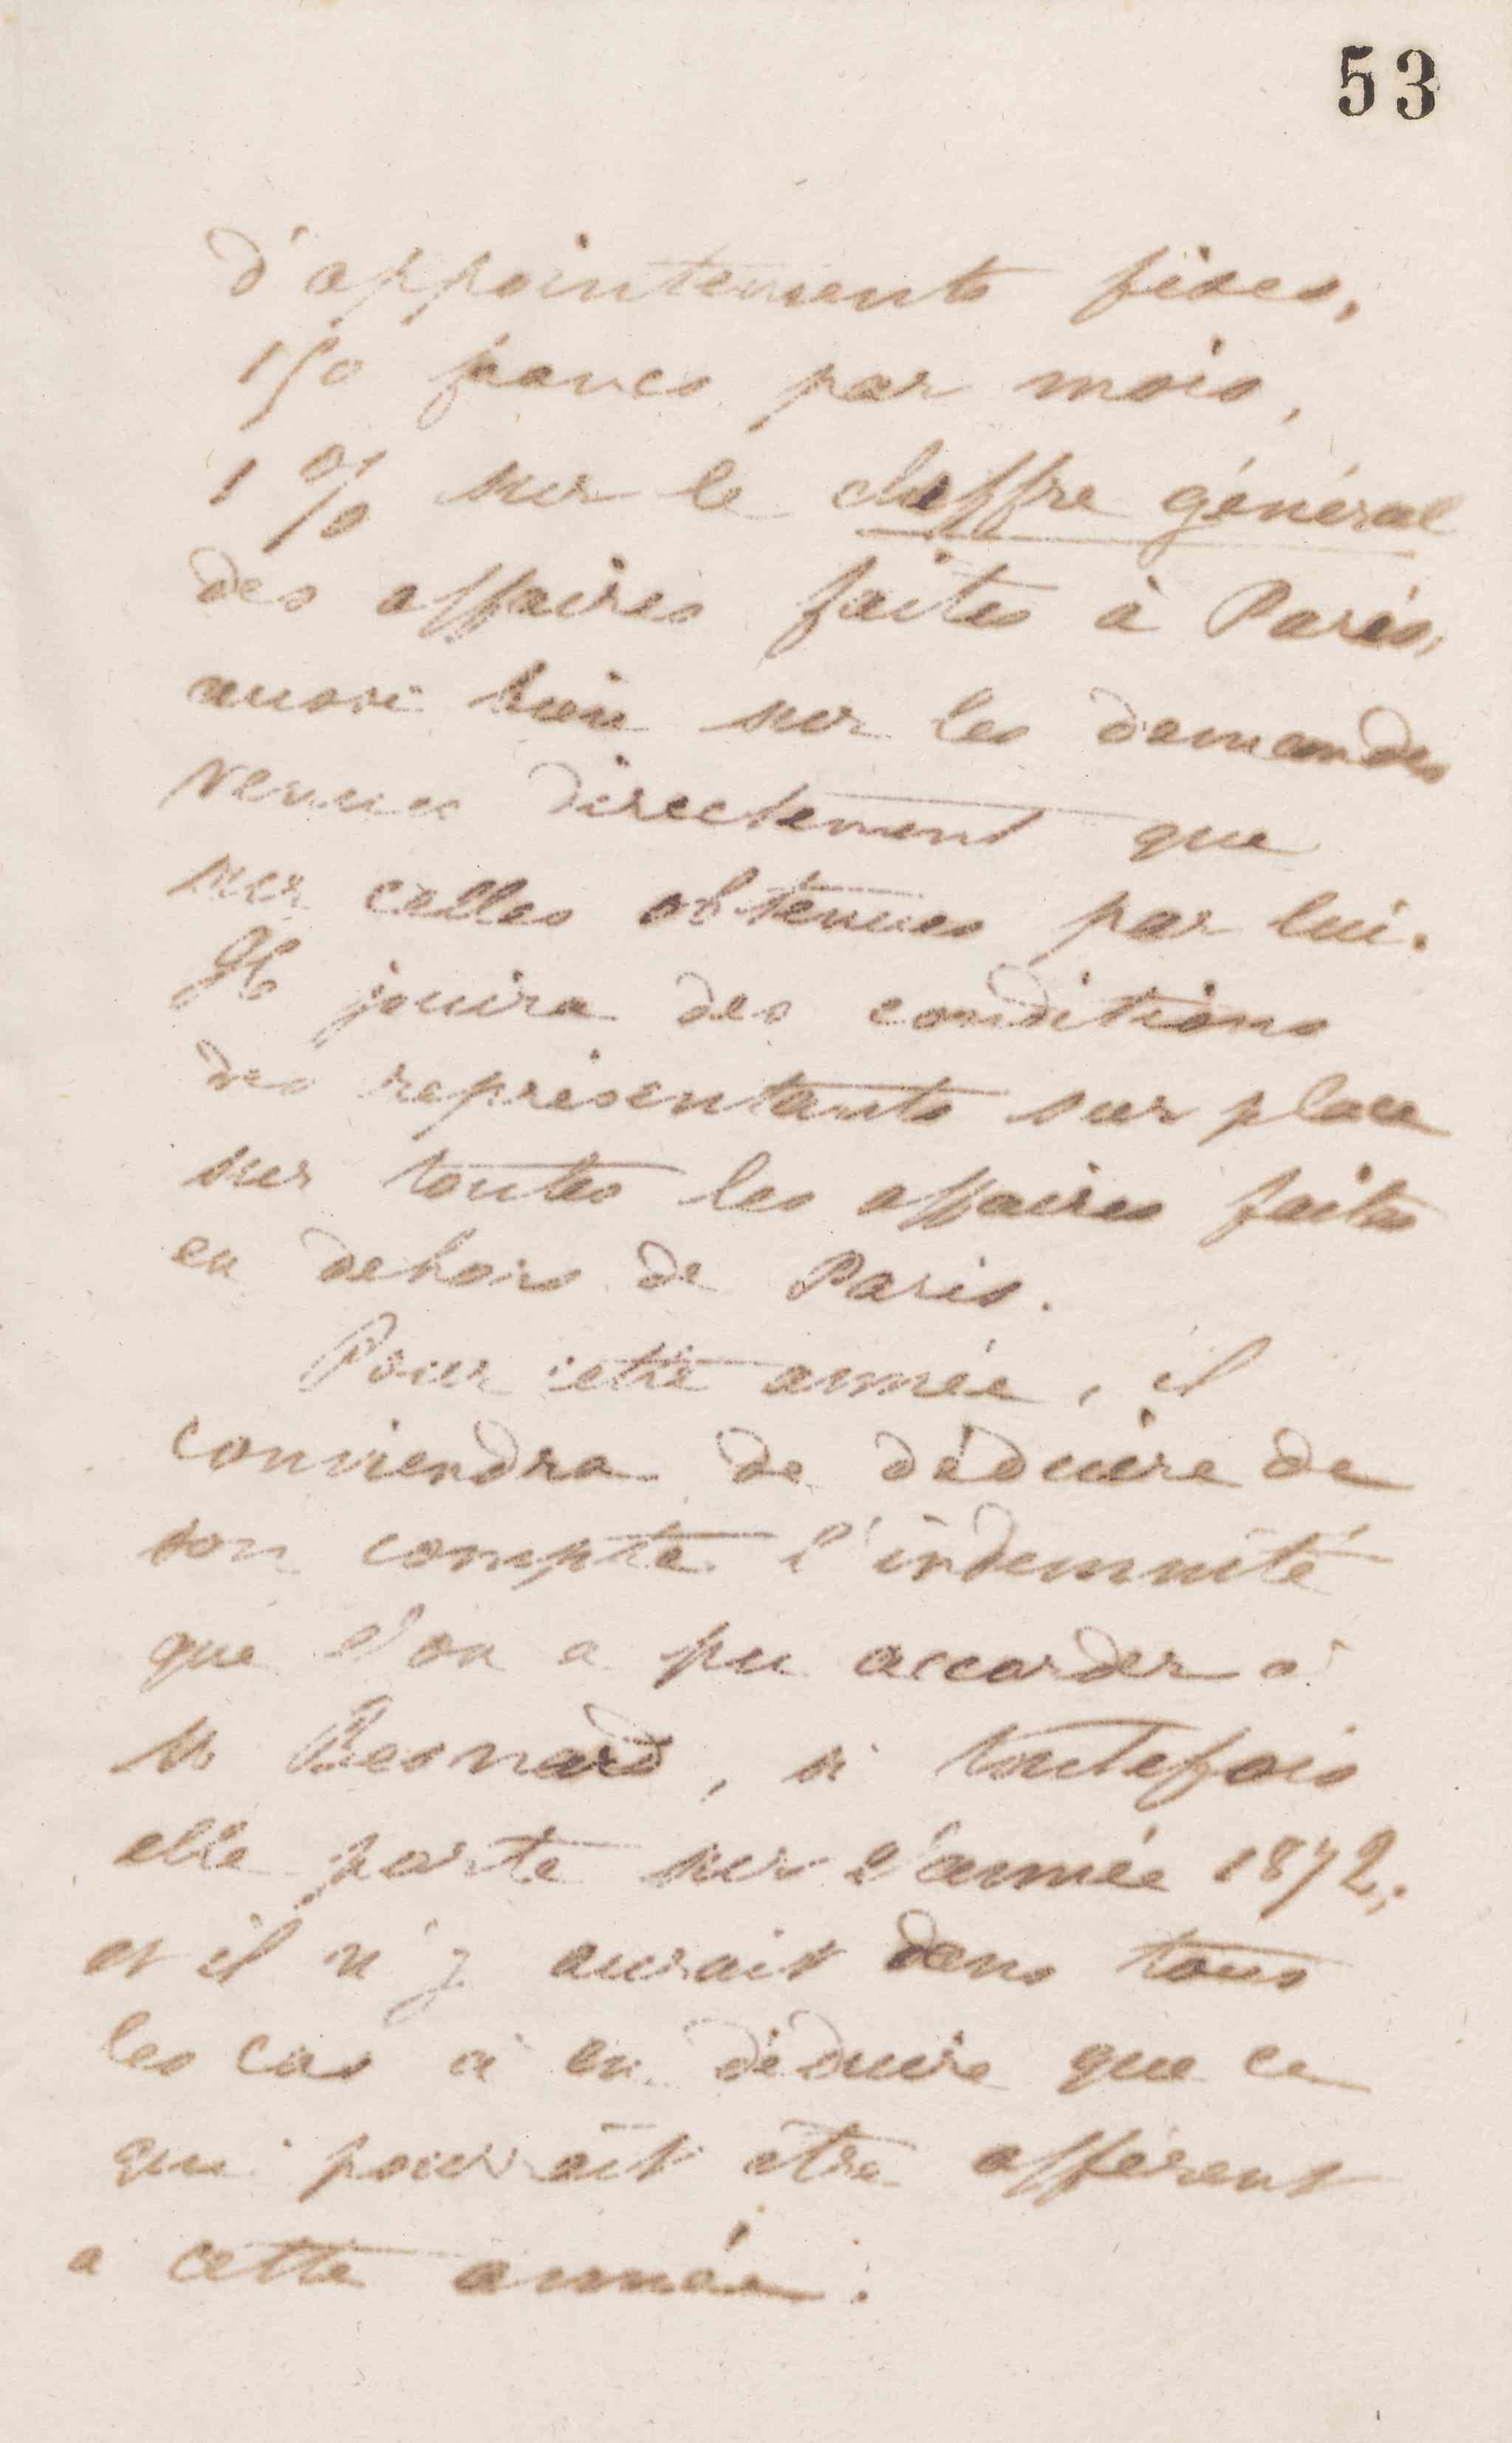 53
d'appointements fixes,
150 francs par mois,
1 % sur le chiffre général
des affaires faites à Paris,
aussi bien sur les demandes
venues directement que
sur celles obtenues par lui.
Il jouira des conditions
des représentants sur place
sur toutes les affaires faites
en dehors de Paris.
Pour cette année, il
conviendra de déduire de
son compte l'indemnité
que l'on a pu accorder à
M Besnard, si toutefois
elle porte sur l'année 1872,
et il n'y aurait dans tous
les cas à en déduire que ce
qui pourrait être afférent
a cette année.